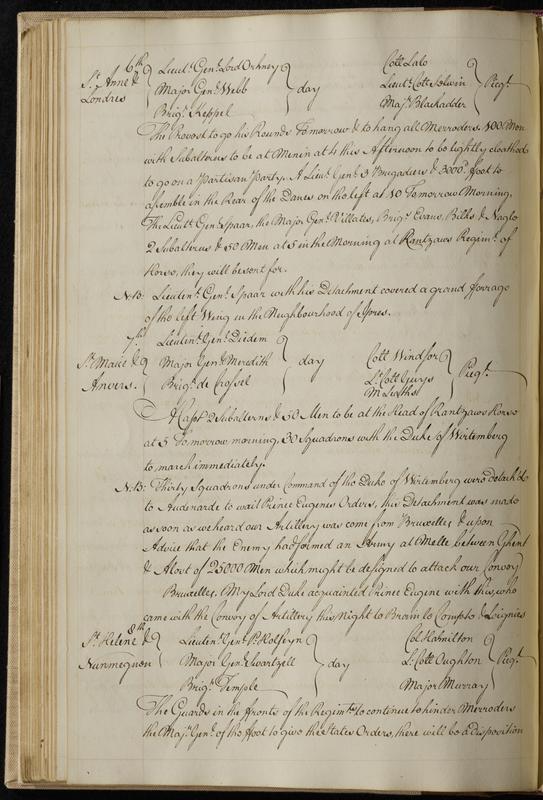 6th
St. Anne & Londres
Lieut. Genl. Lord Orkney
Major Genl. Webb
Brigr. Keppel
day
Coll. Lalo
Lieut. Coll. Solwin
Majr. Blackadder
Picqt.
The Provost to go his Rounds Tomorrow & to hang all Merroders. 400 Men
with Subalterns to be at Menin at 4 this Afternoon to be lightly cloathed
to go on a Partisan Party. A Lieut. Genl. 3 Brigadiers & 3000d. foot to
assemble in the Rear of the Danes on the left at 10 Tomorrow Morning.
The Lieutt. Genl. Spaar, the Major Genl. Villates, Brigrs. Evans, Bilks & Naglo
2 Subalterns & 50 Men at 5 in the Morning at Rantzaws Regimt. of
Horse, they will be sent for.
N:B: Lieutent. Genl. Spaar with his Detachment covered a grand forrage
of the left Wing in the Neighbourhood of Ipres.
7th.
St. Marie & Anvers.
Lieutent. Genl. Diedem
Major Genl. Meredith
Brigr. de Crossel
day
Coll. Windsor
Lt. Coll. Gurys
M
Picqt.
A Capt. 2 Subalterns & 50 Men to be at the Head of Rantzaws Horse
at 5 Tomorrow morning, 30 Squadrons with the Duke of Wirtemberg
to march immediately.
N:B: Thirty Squadrons under Command of the Duke of Wirtemberg were detach'd
to Audenarde to wait Prince Eugenes Orders, this Detachment was made
as soon as we heard our Artillery was come from Bruxelles & upon
Advice that the Enemy had formed an Army at Melle between Ghent
& Alost of 25000 Men which might be designed to attack our Convoy
Bruxelles, My Lord Duke acquainted Prince Eugene with this, who
came with the Convoy of Artillery this Night to Brain le Compte & Soignies
8th
St. Helene & Nunmegnon
Lieutent. Genl. Pr. Holsteyn
Major Genl. Swartzell
Brigr. Temple
day
Col. Hamilton
Lt. Coll. Oughton
Major Murray
Picqt.
The Guards in the fronts of the Regimts. to continue to hinder Merroders
the Majr. Genl. of the foot to give the States Orders, there will be a Disposition